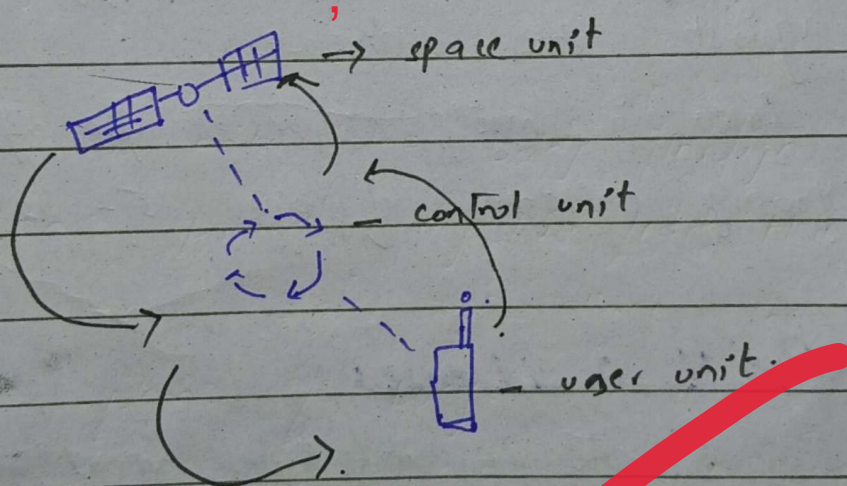 → space unit
- control unit
- user unit.